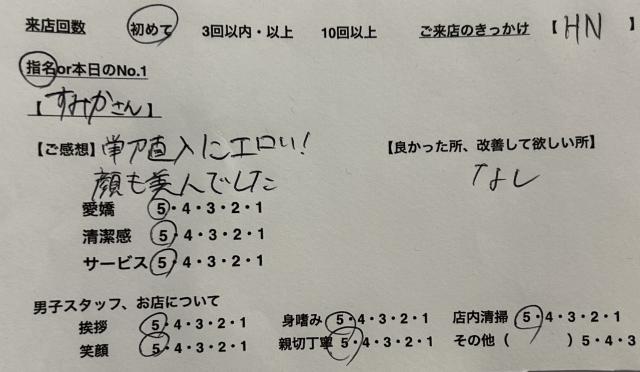 来店回数 初めて 3回以内・以上 10回以上 ご来店のきっかけ 【HN】
指名or本日のNo.1
【すみかさん】
【ご感想】単刀直入にエロい! 【良かった所、改善して欲しい所】
顔も美人でした なし
愛嬌 5・4・3・2・1
清潔感 5・4・3・2・1
サービス 5・4・3・2・1
男子スタッフ、お店について
挨拶 5・4・3・2・1 身嗜み 5・4・3・2・1 店内清掃 5・4・3・2・1
笑顔 5・4・3・2・1 親切丁寧 5・4・3・2・1 その他( )5・4・3